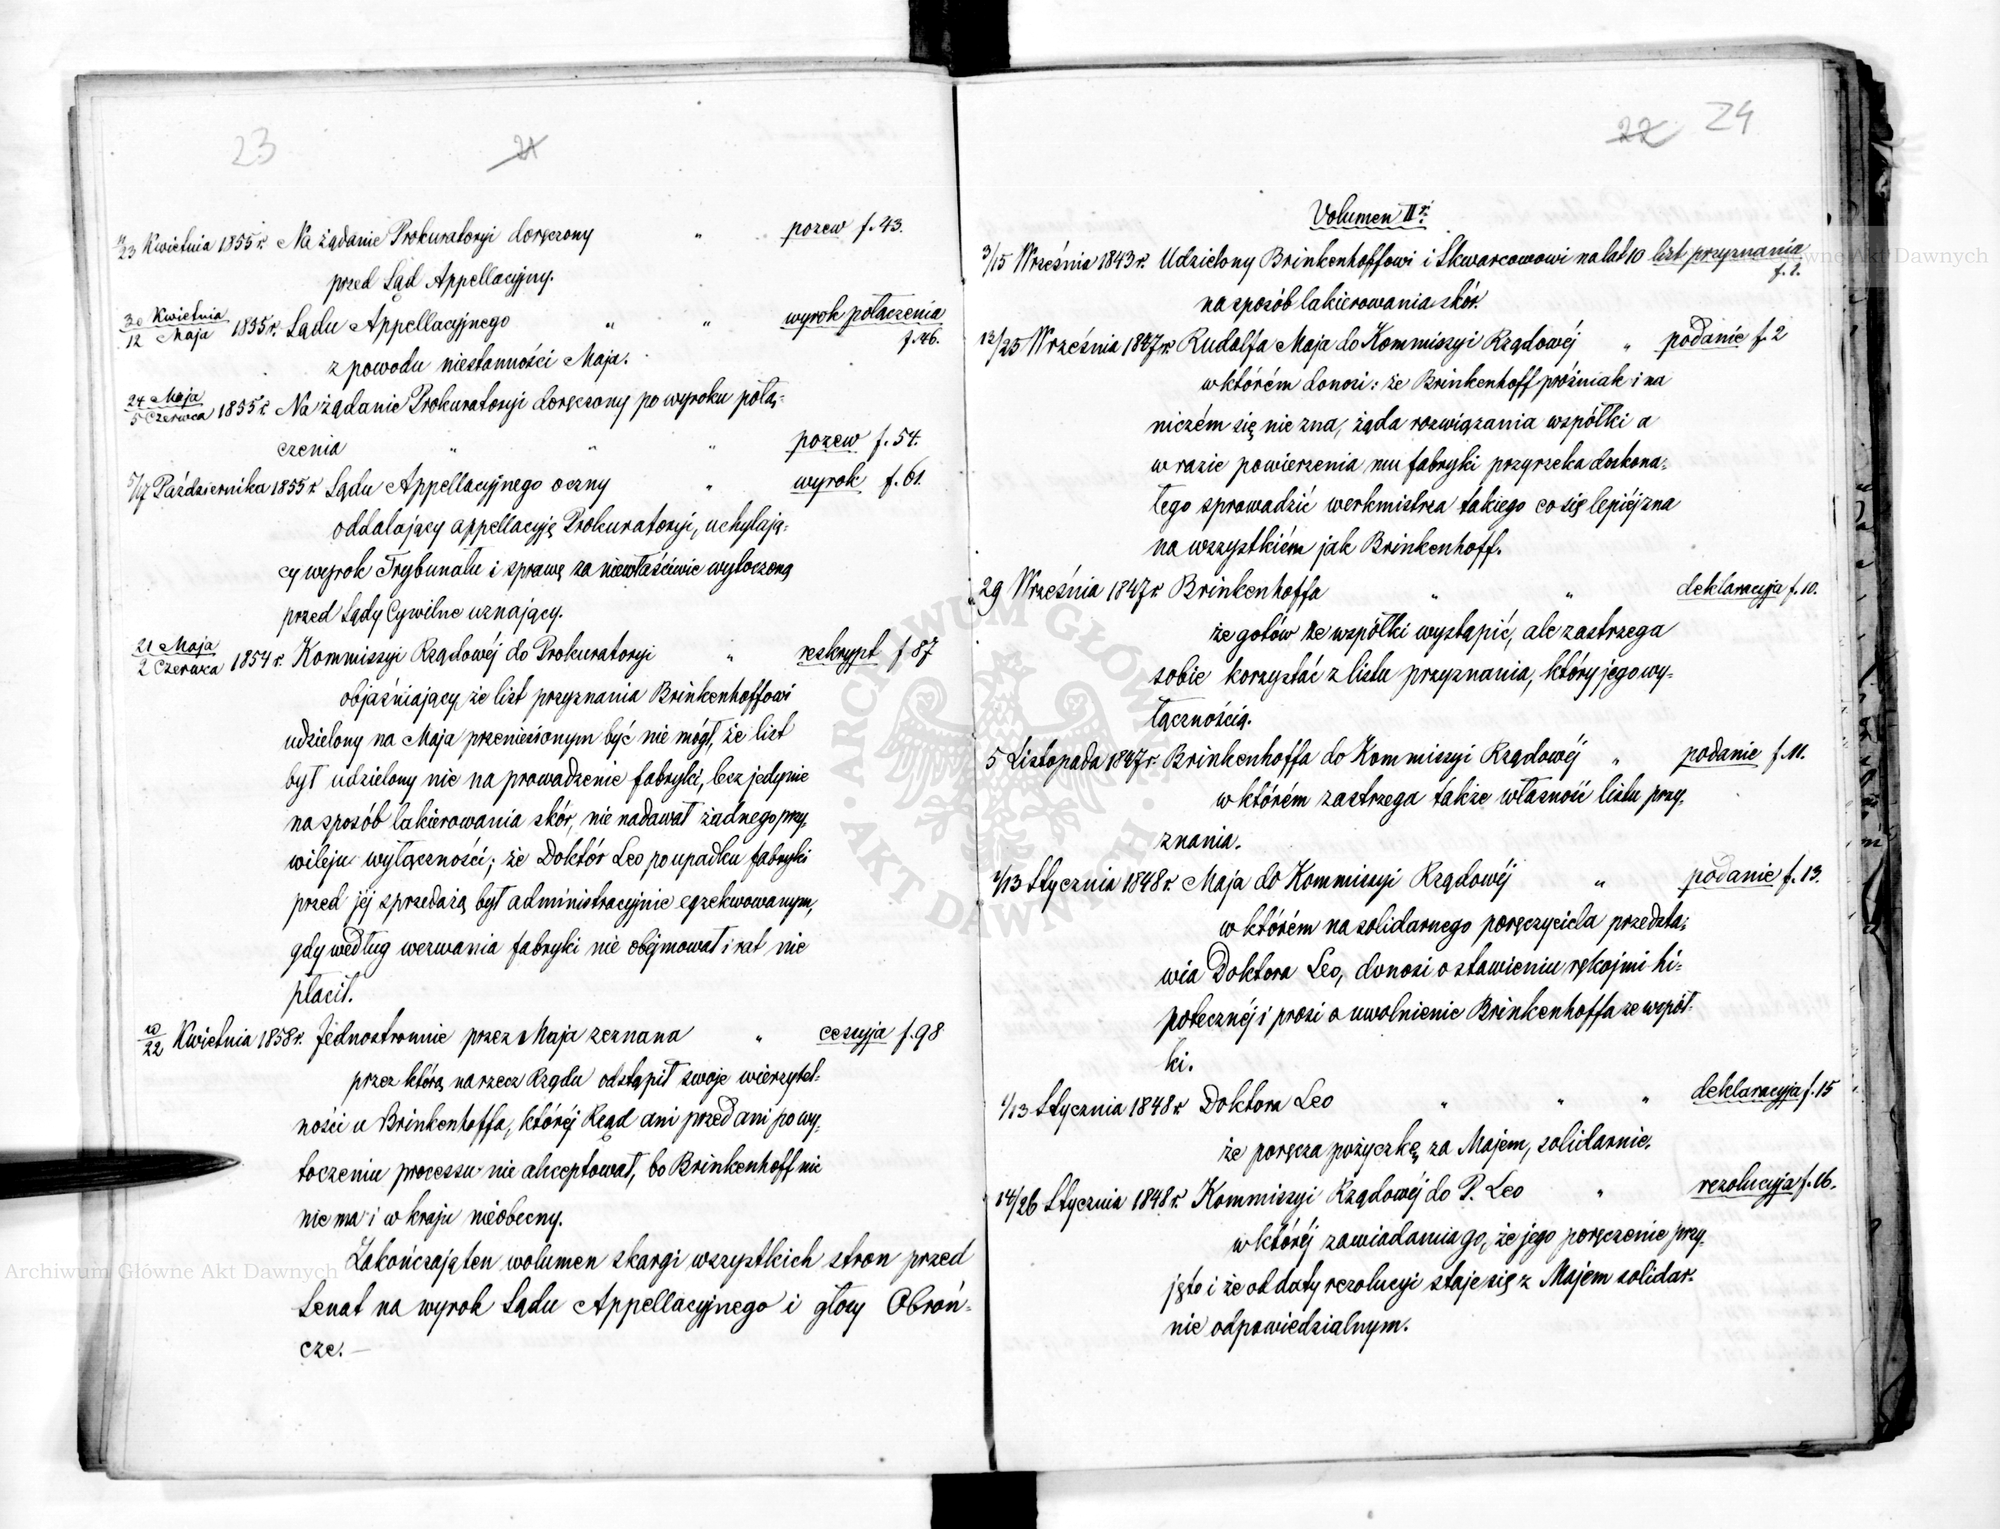 23
21
11/23 Kwietnia 1855 r. Na żądanie Prokuratoryi doręczony " pozew f. 43.
przed Sąd Appellacyjny.
30 Kwietnia/12 Maja 1855 r. Sądu Appellacyjnego " " wyrok połączenia
f. 46.
z powodu niestanności Maja.
24 Maja/5 Czerwca 1855 r. Na żądanie Prokuratoryi doręczony po wyroku połą=
czenia " " " pozew f. 54.
5/17 Października 1855 r. Sądu Appellacyjnego oczny " wyrok f. 61.
oddalający appellacyję Prokuratoryi, uchylają=
cy wyrok Trybunału i sprawę za niewłaściwie wytoczoną
przed Sądy Cywilne uznający.
21 Maja/2 Czerwca 1854 r. Kommissyi Rządowéj do Prokuratoryi " reskrypt f 87
objaśniający, że list przyznania Brinkenhoffowi
udzielony na Maja przeniesionym być nie mógł, że list
był udzielony nie na prowadzenie fabryki, lecz jedynie
na sposób lakierowania skór, nie nadawał żadnego przy,
wileju wyłączności; że Doktór Leo po upadku fabryki
przed jéj sprzedażą był administracyjnie egzekwowanym,
gdy według wezwania fabryki nie objmował i rat nie
płacił.
10/22 Kwietnia 1858 r. Jednostronnie przez Maja zeznana " cessyja f. 98
przez którą na rzecz Rządu odstąpił swoje wierzytel=
ności u Brinkenhoffa, któréj Rząd ani przed ani po wy,
toczeniu processu nie akceptował, bo Brinkenhoff nic
nie ma i w kraju nieobecny.
Zakończają ten wolumen skargi wszystkich stron przed
Senat na wyrok Sądu Appellacyjnego i głosy Obroń=
cze. —
22 24
Volumen II r.
3/15 Września 1843 r. Udzielony Brinkenhoffowi i Skwarcowowi na lat 10 list przyznania
f. 1.
na sposób lakierowania skór.
13/25 Września 1847 r. Rudolfa Maja do Kommissyi Rządowéj " podanie f. 2
w którém donosi: że Brinkenhoff próżniak i na
niczém się nie zna, żąda rozwiązania współki a
w razie powierzenia mu fabryki przyrzeka doskona=
łego sprowadzić werkmistrza takiego co się lepiéj zna
na wszystkiém jak Brinkenhoff.
29 Września 1847 r. Brinkenhoffa " " deklaracyja f. 10.
że gotów ze współki wystąpić, ale zastrzega
sobie korzystać z listu przyznania, który jego wy=
łącznością.
5 Listopada 1847 r. Brinkenhoffa do Kommissyi Rządowéj " podanie f. 11.
w którém zastrzega także własność listu przy,
znania.
1/13 Stycznia 1848 r. Maja do Kommissyi Rządowéj " podanie f. 13.
w którém na solidarnego poręczyciela przedsta=
wia Doktora Leo, donosi o stawieniu rękojmi hi=
potecznéj i prosi o uwolnienie Brinkenhoffa ze współ=
ki.
1/13 Stycznia 1848 r. Doktora Leo " " " deklaracyja f. 15
że poręcza pożyczkę za Majem, solidarnie.
14/26 Stycznia 1848 r. Kommissyi Rządowéj do P. Leo " rezolucyja f. 16.
w któréj zawiadamia go, że jego poręczenie przy,
jęto i że od daty rezolucyi staje się z Majem solidar=
nie odpowiedzialnym.
Archiwum Główne Akt Dawnych
ARCHIWUM GŁÓWNE AKT DAWNYCH
Archiwum Główne Akt Dawnych